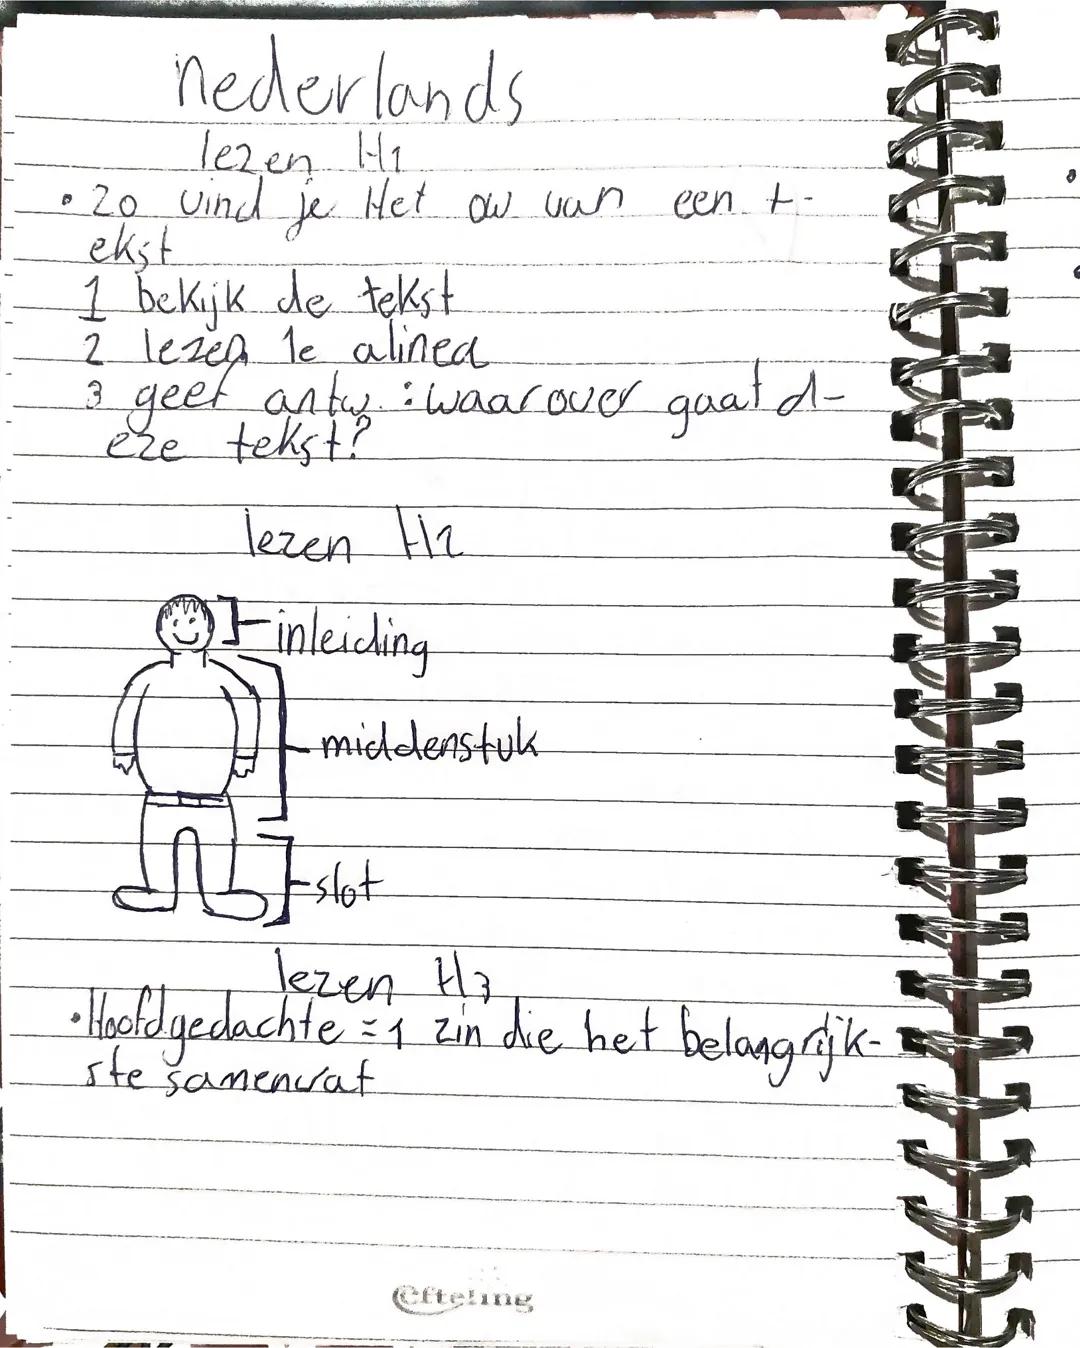 nederlands
lezen H1
• zo vind je Het ow van een t-
ekst
1 bekijk de tekst
2 lezen 1e alinea
3 geef antw. : waarover gaat d-
eze tekst?
lezen H2
inleiding
middenstuk
slot
lezen H3
• Hoofdgedachte = 1 zin die het belangrijk-
ste samenvat
efteling